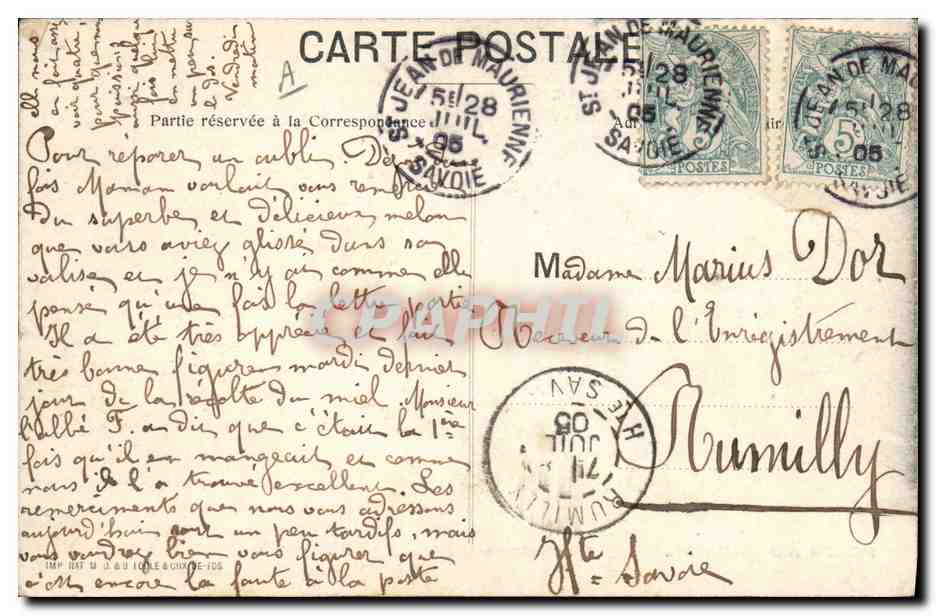 CARTE POSTALE
Partie réservée à la Correspondance
A
ST JEAN DE MAURIENNE
5E/28
JUIL
05
SAVOIE
ST JEAN DE MAURIENNE
5E/28
JUIL
05
SAVOIE
ST JEAN DE MAURIENNE
5E/28
JUIL
05
SAVOIE
POSTES
5
POSTES
elle nous
en fait
voir quatre
pour
puissiez
ainsi quelque
fois
en mettre
un peu
le dos.
Pour reparer un oubli. Dès
fois Maman voulait vous remercier
du superbe et délicieux melon
que vous aviez glissé dans sa
valise et je n'y ai comme elle
pensé qu'une fois la lettre partie
Il a été très apprécié et fait
très bonne figure mardi dernier
jour de la récolte du miel. Monsieur
l'abbé F. a dit que c'était la 1ère
fois qu'il en mangeait et comme
nous il l'a trouvé excellent. Les
remerciments que nous vous adressons
aujourd'hui sont un peu tardifs, mais
vous voudrez bien vous figurer que
c'est encore la faute à la poste
Madame Marius Dor
Receveur de l'Enrégistrement
Rumilly
Hte Savoie
RUMILLY
HTE SAV
JUIL
05
CPAPHIL